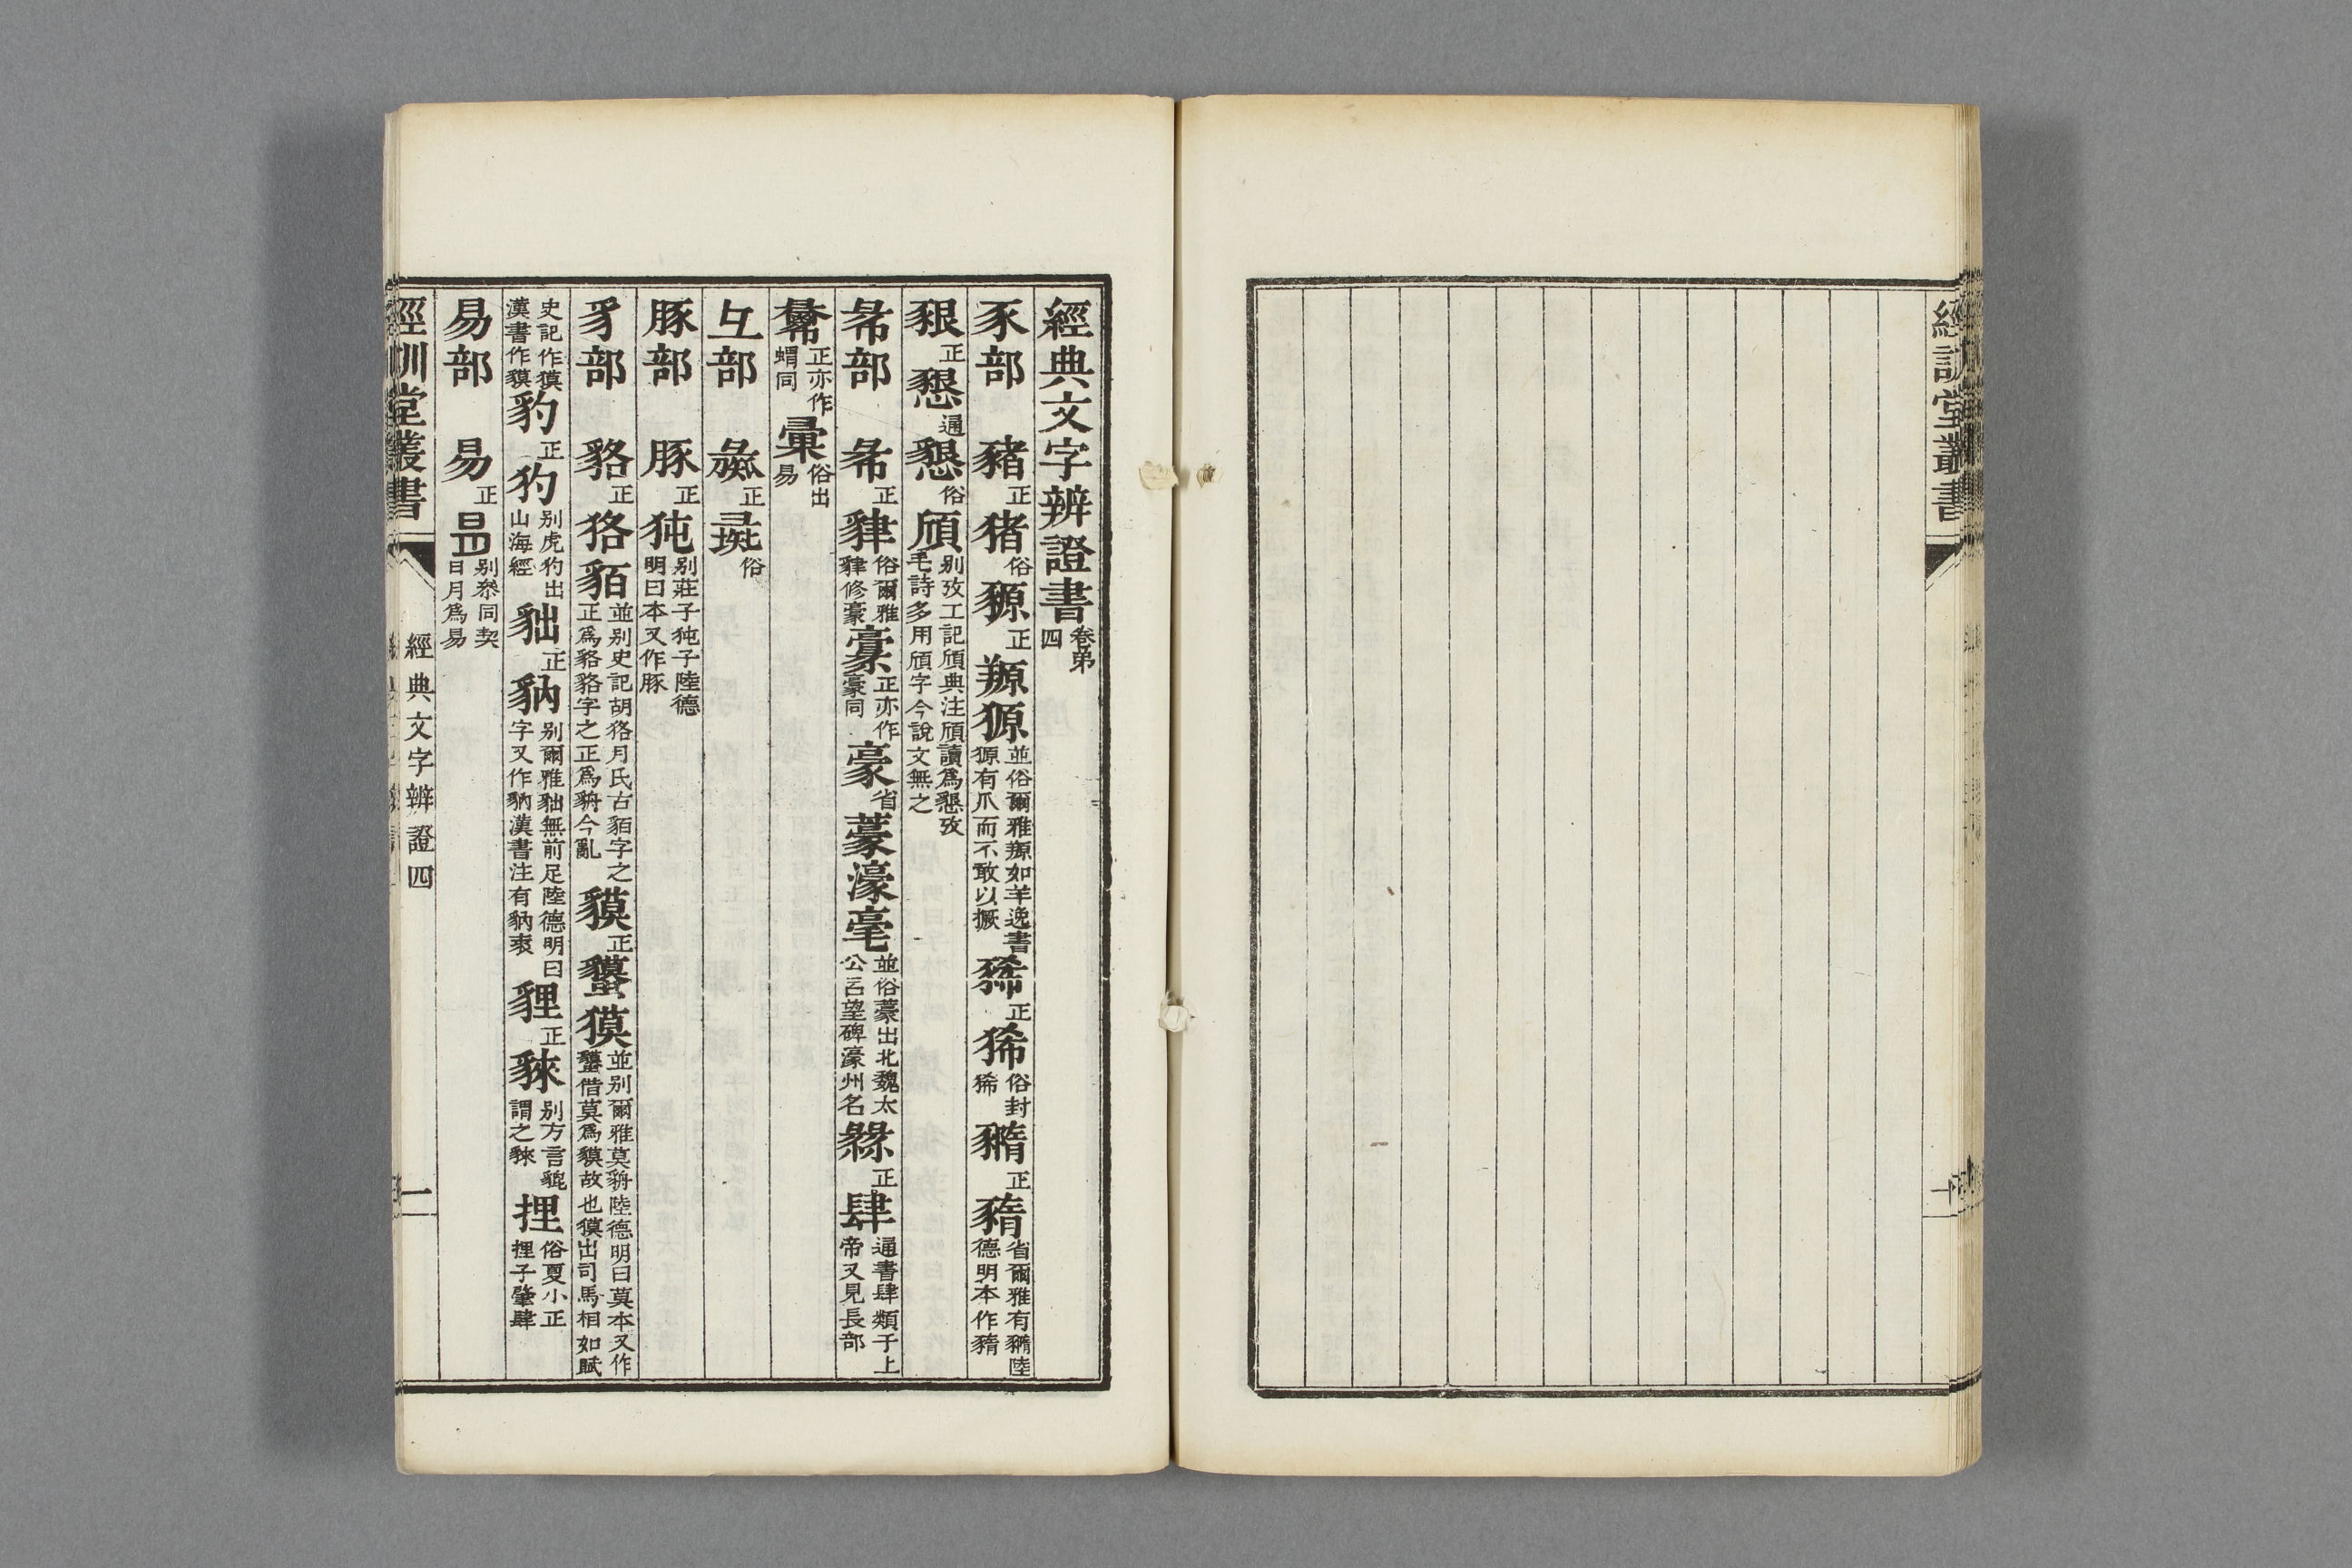 經訓堂叢書
經典文字辨證書卷弟四
豕部 豬正 猪俗 豲正 羱䝠並俗爾雅羱如羊逸書豲有爪而不敢以撅 豨正 狶俗封狶 䝐正 䝐省爾雅有䝐陸德明本作䝐
豤正 懇通 懇俗 頎别攷工記頎典注頎讀爲懇攷毛詩多用頎字今說文無之
㣇部 㣇正 肄俗爾雅貄修豪 豪正亦作豪同 豪省 藁濠毫並俗藁出北魏太公呂望碑濠州名 𨽸正 肆通書肆類于上帝又見長部
𢑥正亦作蝟同 彙俗出易
彑部 彘正 彘俗
豚部 豚正 㹠别莊子㹠子陸德明曰本又作豚
豸部 貉正 狢貊並别史記胡狢月氏古貊字之正爲貉貉字之正爲貈今亂 貘正 獏並别爾雅莫貈陸德明曰莫本又作蟔借莫爲貘故也獏出司馬相如賦
史記作獏漢書作貘 豹正 犳别虎犳出山海經 貀正 豽别爾雅貀無前足陸德明曰字又作豽漢書注有豽裘 貍正 䝲别方言貔謂之䝲 狸俗夏小正狸子肇肆
易部 易正 别叅同契日月爲易
經訓堂叢書 經典文字辨證四 一